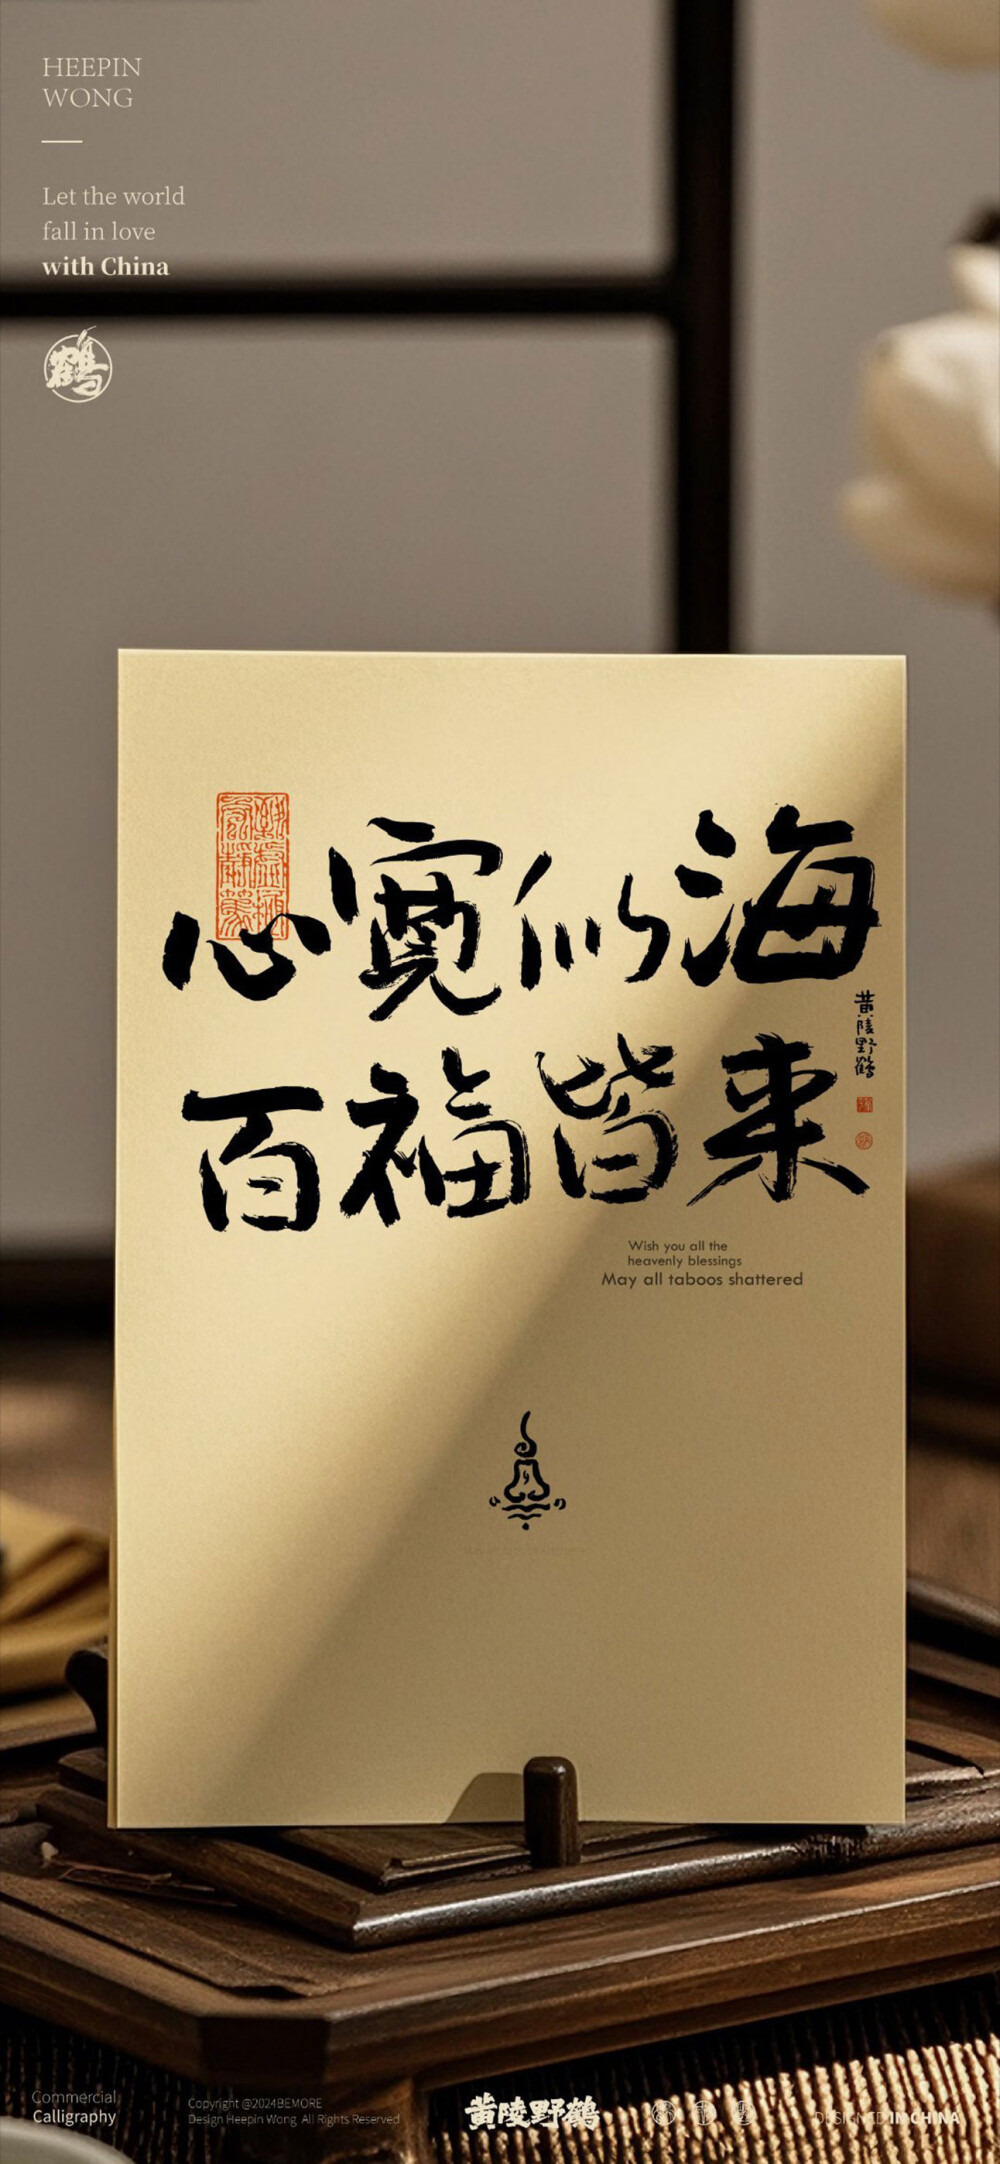 HEEPIN
WONG
Let the world
fall in love
with China
鶴
心寬似海
百福皆来
黄陵野鹤
Wish you all the
heavenly blessings
May all taboos shattered
Commercial
Calligraphy
Copyright @2024BEMORE
Design Heepin Wong All Rights Reserved
黄陵野鹤
DESIGNED IN CHINA